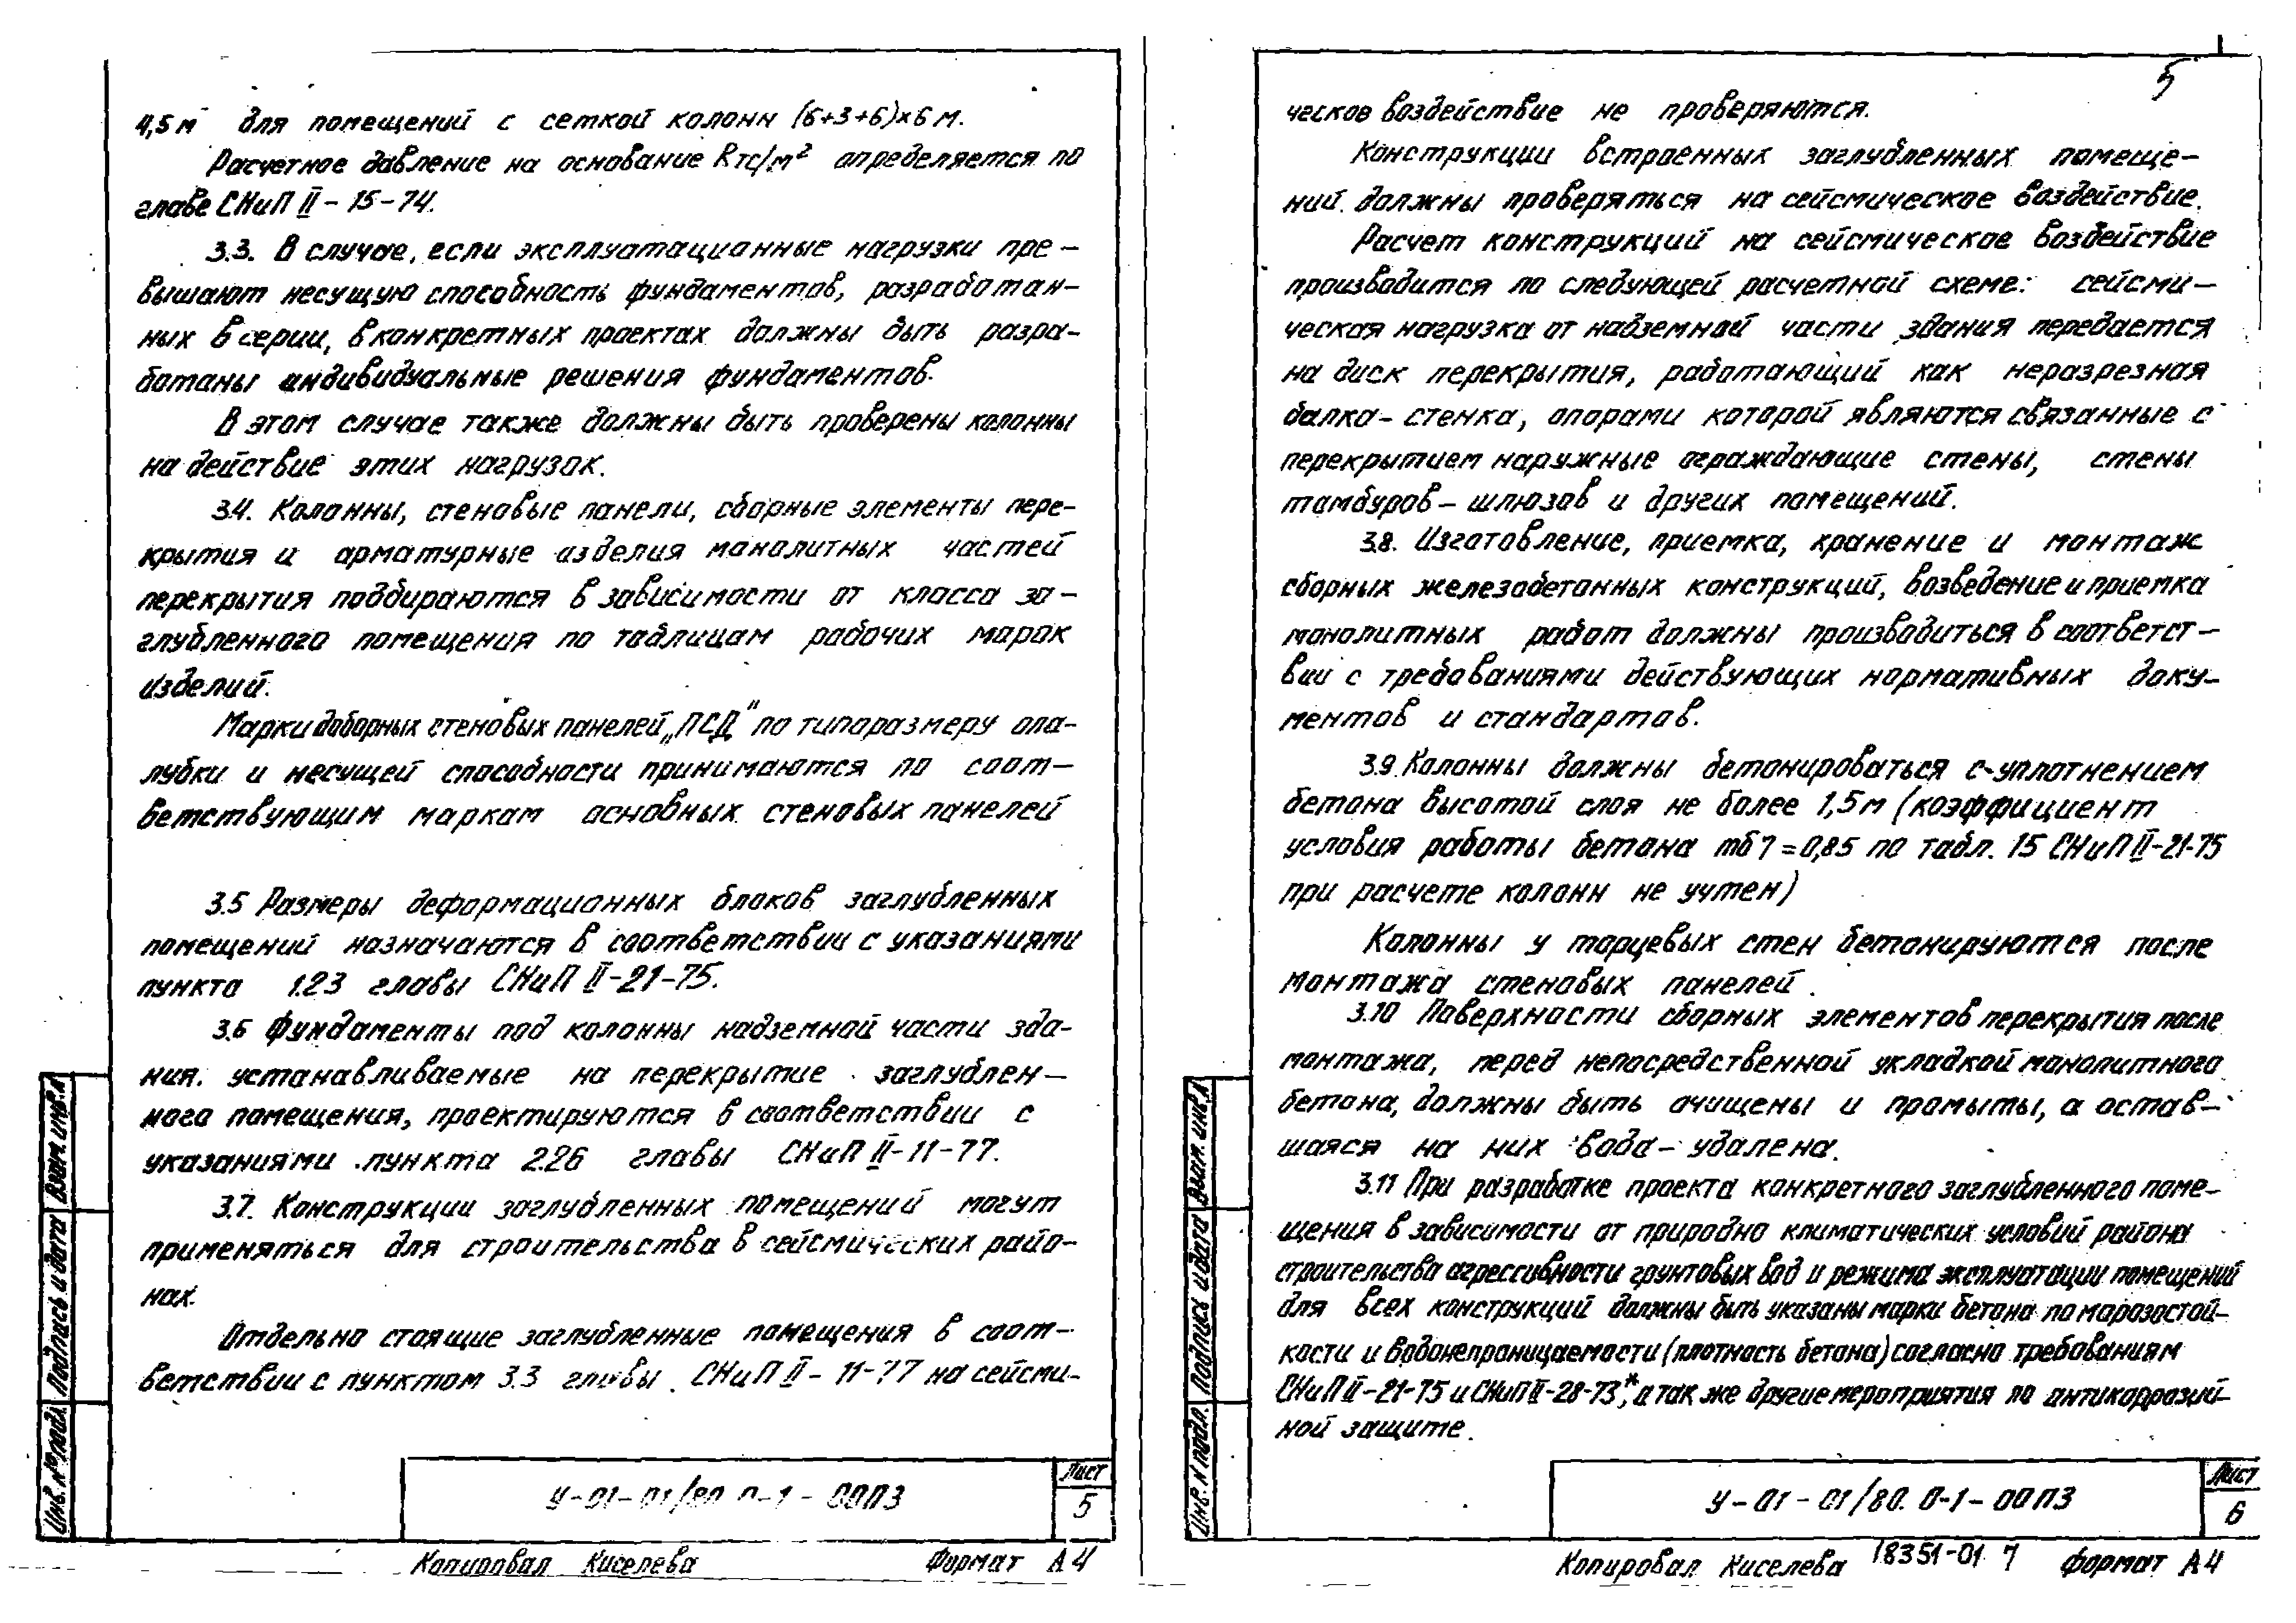 4,5м для помещений с сеткой колонн (6+3+6)×6 м.
Расчетное давление на основание R тс/м² определяется по
главе СНиП II – 15 – 74.
3.3. В случае, если эксплуатационные нагрузки пре –
вышают несущую способность фундаментов, разработан–
ных в серии, в конкретных проектах должны быть разра–
ботаны индивидуальные решения фундаментов.
В этом случае также должны быть проверены колонны
на действие этих нагрузок.
3.4. Колонны, стеновые панели, сборные элементы пере–
крытия и арматурные изделия монолитных частей
перекрытия подбираются в зависимости от класса за –
глубленного помещения по таблицам рабочих марок
изделий.
Марки доборных стеновых панелей „ПСД" по типоразмеру опа–
лубки и несущей способности принимаются по соот–
ветствующим маркам основных стеновых панелей
3.5 Размеры деформационных блоков заглубленных
помещений назначаются в соответствии с указаниями
пункта 1.23 главы СНиП II–21–75.
3.6 Фундаменты под колонны надземной части зда–
ния. устанавливаемые на перекрытие заглублен–
ного помещения, проектируются в соответствии с
указаниями пункта 2.26 главы СНиП II–11–77.
3.7. Конструкции заглубленных помещений могут
применяться для строительства в сейсмических райо–
нах.
Отдельно стоящие заглубленные помещения в соот–
ветствии с пунктом 3.3 главы СНиП II – 11–77 на сейсми–
У–01–01/80 0–1 – 00ПЗ
Лист
5
Копировал Киселева Формат А4
Взам. инв.№
Подпись и дата
Инв. № подл.
5
ческое воздействие не проверяются.
Конструкции встроенных заглубленных помеще–
ний должны проверяться на сейсмическое воздействие.
Расчет конструкций на сейсмическое воздействие
производится по следующей расчетной схеме: сейсми–
ческая нагрузка от надземной части здания передается
на диск перекрытия, работающий как неразрезная
балка–стенка, опорами которой являются связанные с
перекрытием наружные ограждающие стены, стены
тамбуров–шлюзов и других помещений.
3.8. Изготовление, приемка, хранение и монтаж
сборных железобетонных конструкций, возведение и приемка
монолитных работ должны производиться в соответст–
вии с требованиями действующих нормативных доку–
ментов и стандартов.
3.9. Колонны должны бетонироваться с уплотнением
бетона высотой слоя не более 1,5м (коэффициент
условия работы бетона mб7=0,85 по табл. 15 СНиП II–21–75
при расчете колонн не учтен)
Колонны у торцевых стен бетонируются после
монтажа стеновых панелей.
3.10 Поверхности сборных элементов перекрытия после
монтажа, перед непосредственной укладкой монолитного
бетона, должны быть очищены и промыты, а остав–
шаяся на них вода – удалена.
3.11 При разработке проекта конкретного заглубленного поме–
щения в зависимости от природно климатических условий района
строительства агрессивности грунтовых вод и режима эксплуатации помещений
для всех конструкций должны быть указаны марки бетона по морозостой–
кости и водонепроницаемости (плотность бетона) согласно требованиям
СНиП II–21–75 и СНиП II–28–73*, а так же другие мероприятия по антикоррозий–
ной защите.
У–01–01/80. 0–1–00ПЗ
Лист
6
Копировал Киселева 18351–01 7 Формат А4
Взам. инв.№
Подпись и дата
Инв. N подл.